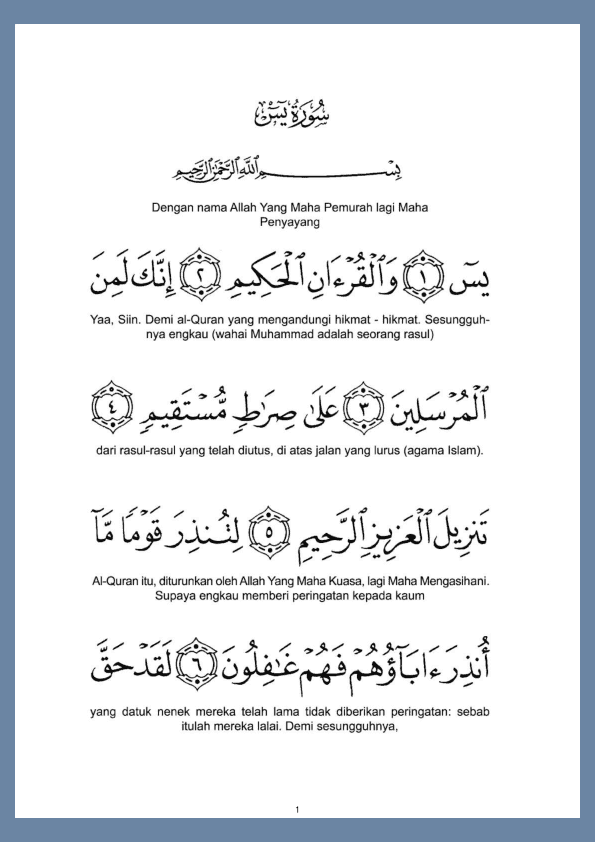 سُورَةُ يسٓ
بِسْمِ ٱللَّهِ ٱلرَّحْمَٰنِ ٱلرَّحِيمِ
Dengan nama Allah Yang Maha Pemurah lagi Maha
Penyayang
يسٓ ١ وَٱلْقُرْءَانِ ٱلْحَكِيمِ ٢ إِنَّكَ لَمِنَ
Yaa, Siin. Demi al-Quran yang mengandungi hikmat - hikmat. Sesungguh-
nya engkau (wahai Muhammad adalah seorang rasul)
ٱلْمُرْسَلِينَ ٣ عَلَىٰ صِرَٰطٍ مُّسْتَقِيمٍ ٤
dari rasul-rasul yang telah diutus, di atas jalan yang lurus (agama Islam).
تَنزِيلَ ٱلْعَزِيزِ ٱلرَّحِيمِ ٥ لِتُنذِرَ قَوْمًا مَّآ
Al-Quran itu, diturunkan oleh Allah Yang Maha Kuasa, lagi Maha Mengasihani.
Supaya engkau memberi peringatan kepada kaum
أُنذِرَ ءَابَآؤُهُمْ فَهُمْ غَٰفِلُونَ ٦ لَقَدْ حَقَّ
yang datuk nenek mereka telah lama tidak diberikan peringatan: sebab
itulah mereka lalai. Demi sesungguhnya,
1